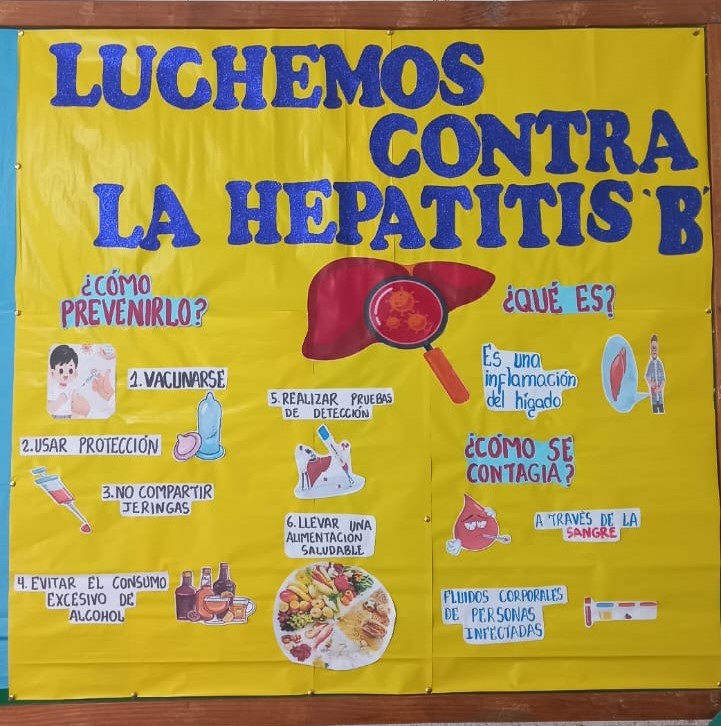 LUCHEMOS
CONTRA
LA HEPATITIS 'B'
¿CÓMO
PREVENIRLO?
1. VACUNARSE
2. USAR PROTECCIÓN
3. NO COMPARTIR
JERINGAS
4. EVITAR EL CONSUMO
EXCESIVO DE
ALCOHOL
5. REALIZAR PRUEBAS
DE DETECCIÓN
6. LLEVAR UNA
ALIMENTACIÓN
SALUDABLE
¿QUÉ ES?
Es una
inflamación
del hígado
¿CÓMO SE
CONTAGIA?
A TRAVÉS DE LA
SANGRE
FLUIDOS CORPORALES
DE PERSONAS
INFECTADAS